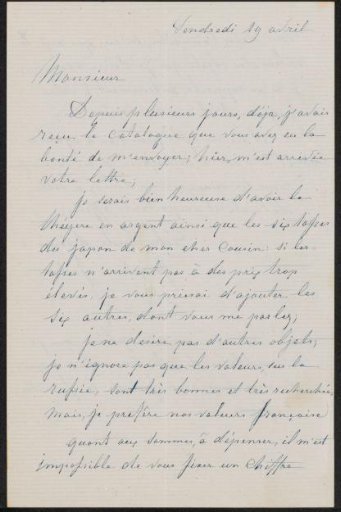 Vendredi 29 avril
Monsieur
Depuis plusieurs jours, déja, j'avais
reçu le catalogue que vous avez eu la
bonté de m'envoyer; hier, m'est arrivée
votre lettre,
je serais bien heureuse d'avoir la
théyère en argent ainsi que les six tasses
du japon de mon cher Cousin: si les
tasses n'arrivent pas à des prix trop
élevés, je vous prierai d'ajouter les
six autres, dont vous me parlez;
je ne désire pas d'autres objets;
je n'ignore pas que les valeurs sur la
russie, sont très bonnes et très recherchées,
mais je préfère nos valeurs française
quant aux sommes, à dépenser, il m'est
impossible de vous fixer un chiffre